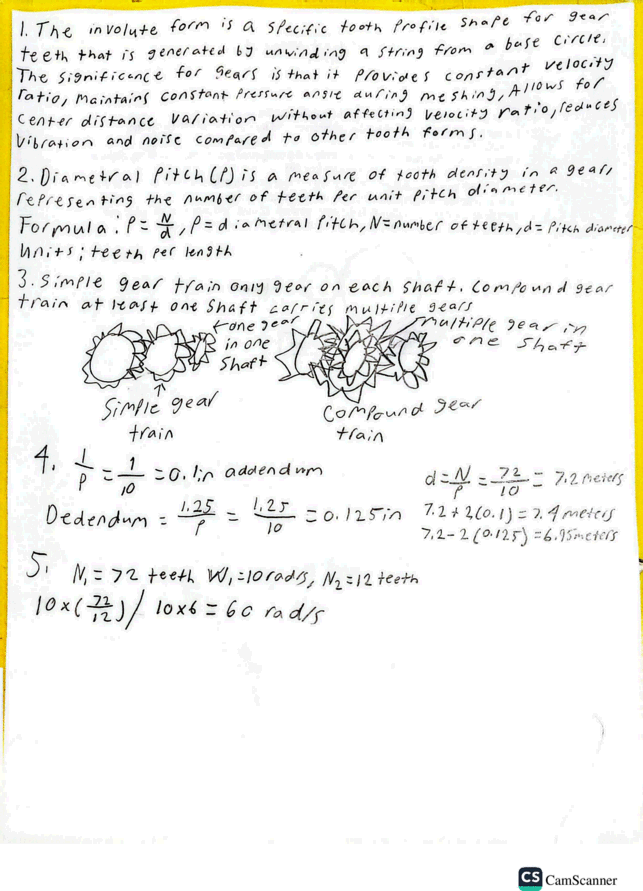 1. The involute form is a specific tooth profile shape for gear
teeth that is generated by unwinding a string from a base circle.
The significence for gears is that it provides constant velocity
ratio, maintains constant pressure angle during meshing, Allows for
center distance variation without affecting velocity ratio, reduces
vibration and noise compared to other tooth forms.
2. Diametral Pitch (P) is a measure of tooth density in a gear,
representing the number of teeth per unit pitch diameter.
Formula: P = N/d, P = diametral pitch, N = number of teeth, d = pitch diameter
Units; teeth per length
3. Simple gear train only gear on each shaft. Compound gear
train at least one shaft carries multiple gears
←one gear
in one
shaft
multiple gear in
one shaft
Simple gear
train
Compound gear
train
4. 1/P = 1/10 = 0.1in addendum
Dedendum = 1.25/P = 1.25/10 = 0.125in
d = N/P = 72/10 = 7.2 meters
7.2 + 2(0.1) = 7.4 meters
7.2 - 2(0.125) = 6.95 meters
5. N₁ = 72 teeth W₁ = 10 rad/s, N₂ = 12 teeth
10 x (72/12) / 10x6 = 60 rad/s
CS CamScanner